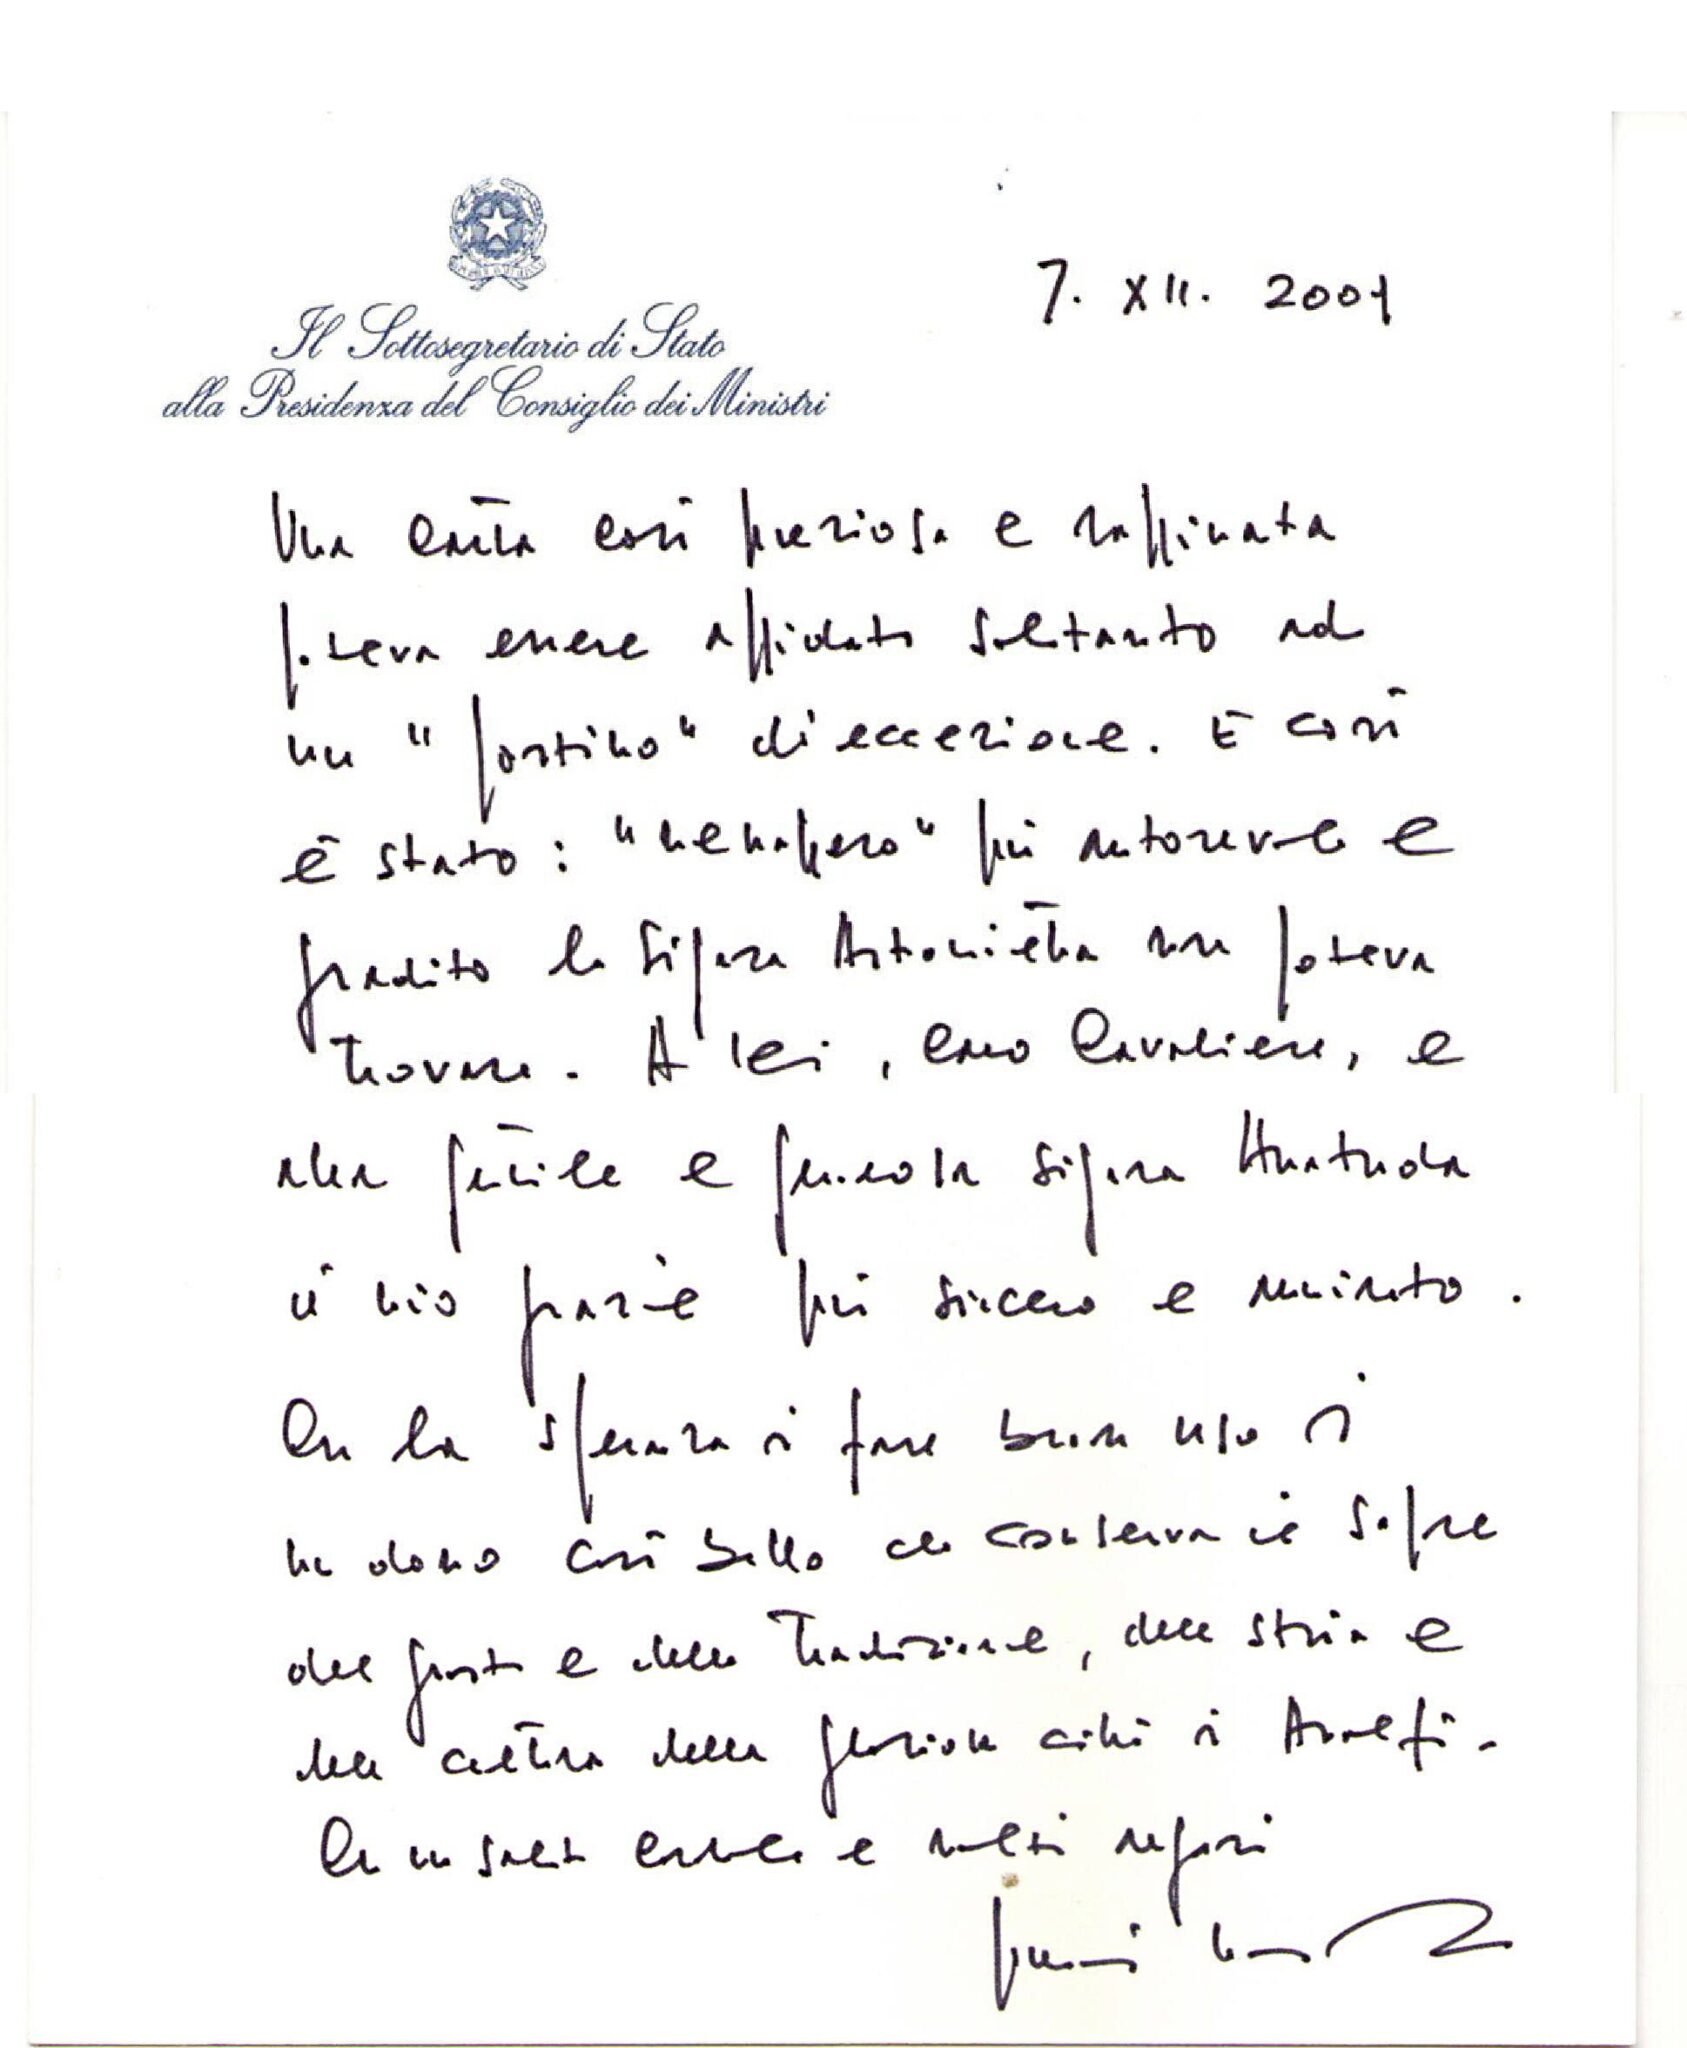 7. XII. 2001
Il Sottosegretario di Stato
alla Presidenza del Consiglio dei Ministri
Una carta così preziosa e raffinata
poteva essere affidata soltanto ad
un "postino" di eccezione. E così
è stato: "messaggero" più autorevole e
gradito la Signora Antonietta non poteva
trovare. A lei, caro Cavaliere, e
alla gentile e generosa Signora
il mio grazie più sincero e ammirato.
Con la speranza di fare buon uso di
un dono così bello che conserva il sapore
del gusto e della Tradizione, della storia e
della cultura della gloriosa città di Amalfi.
Con un saluto cordiale e molti auguri
Gianni Letta